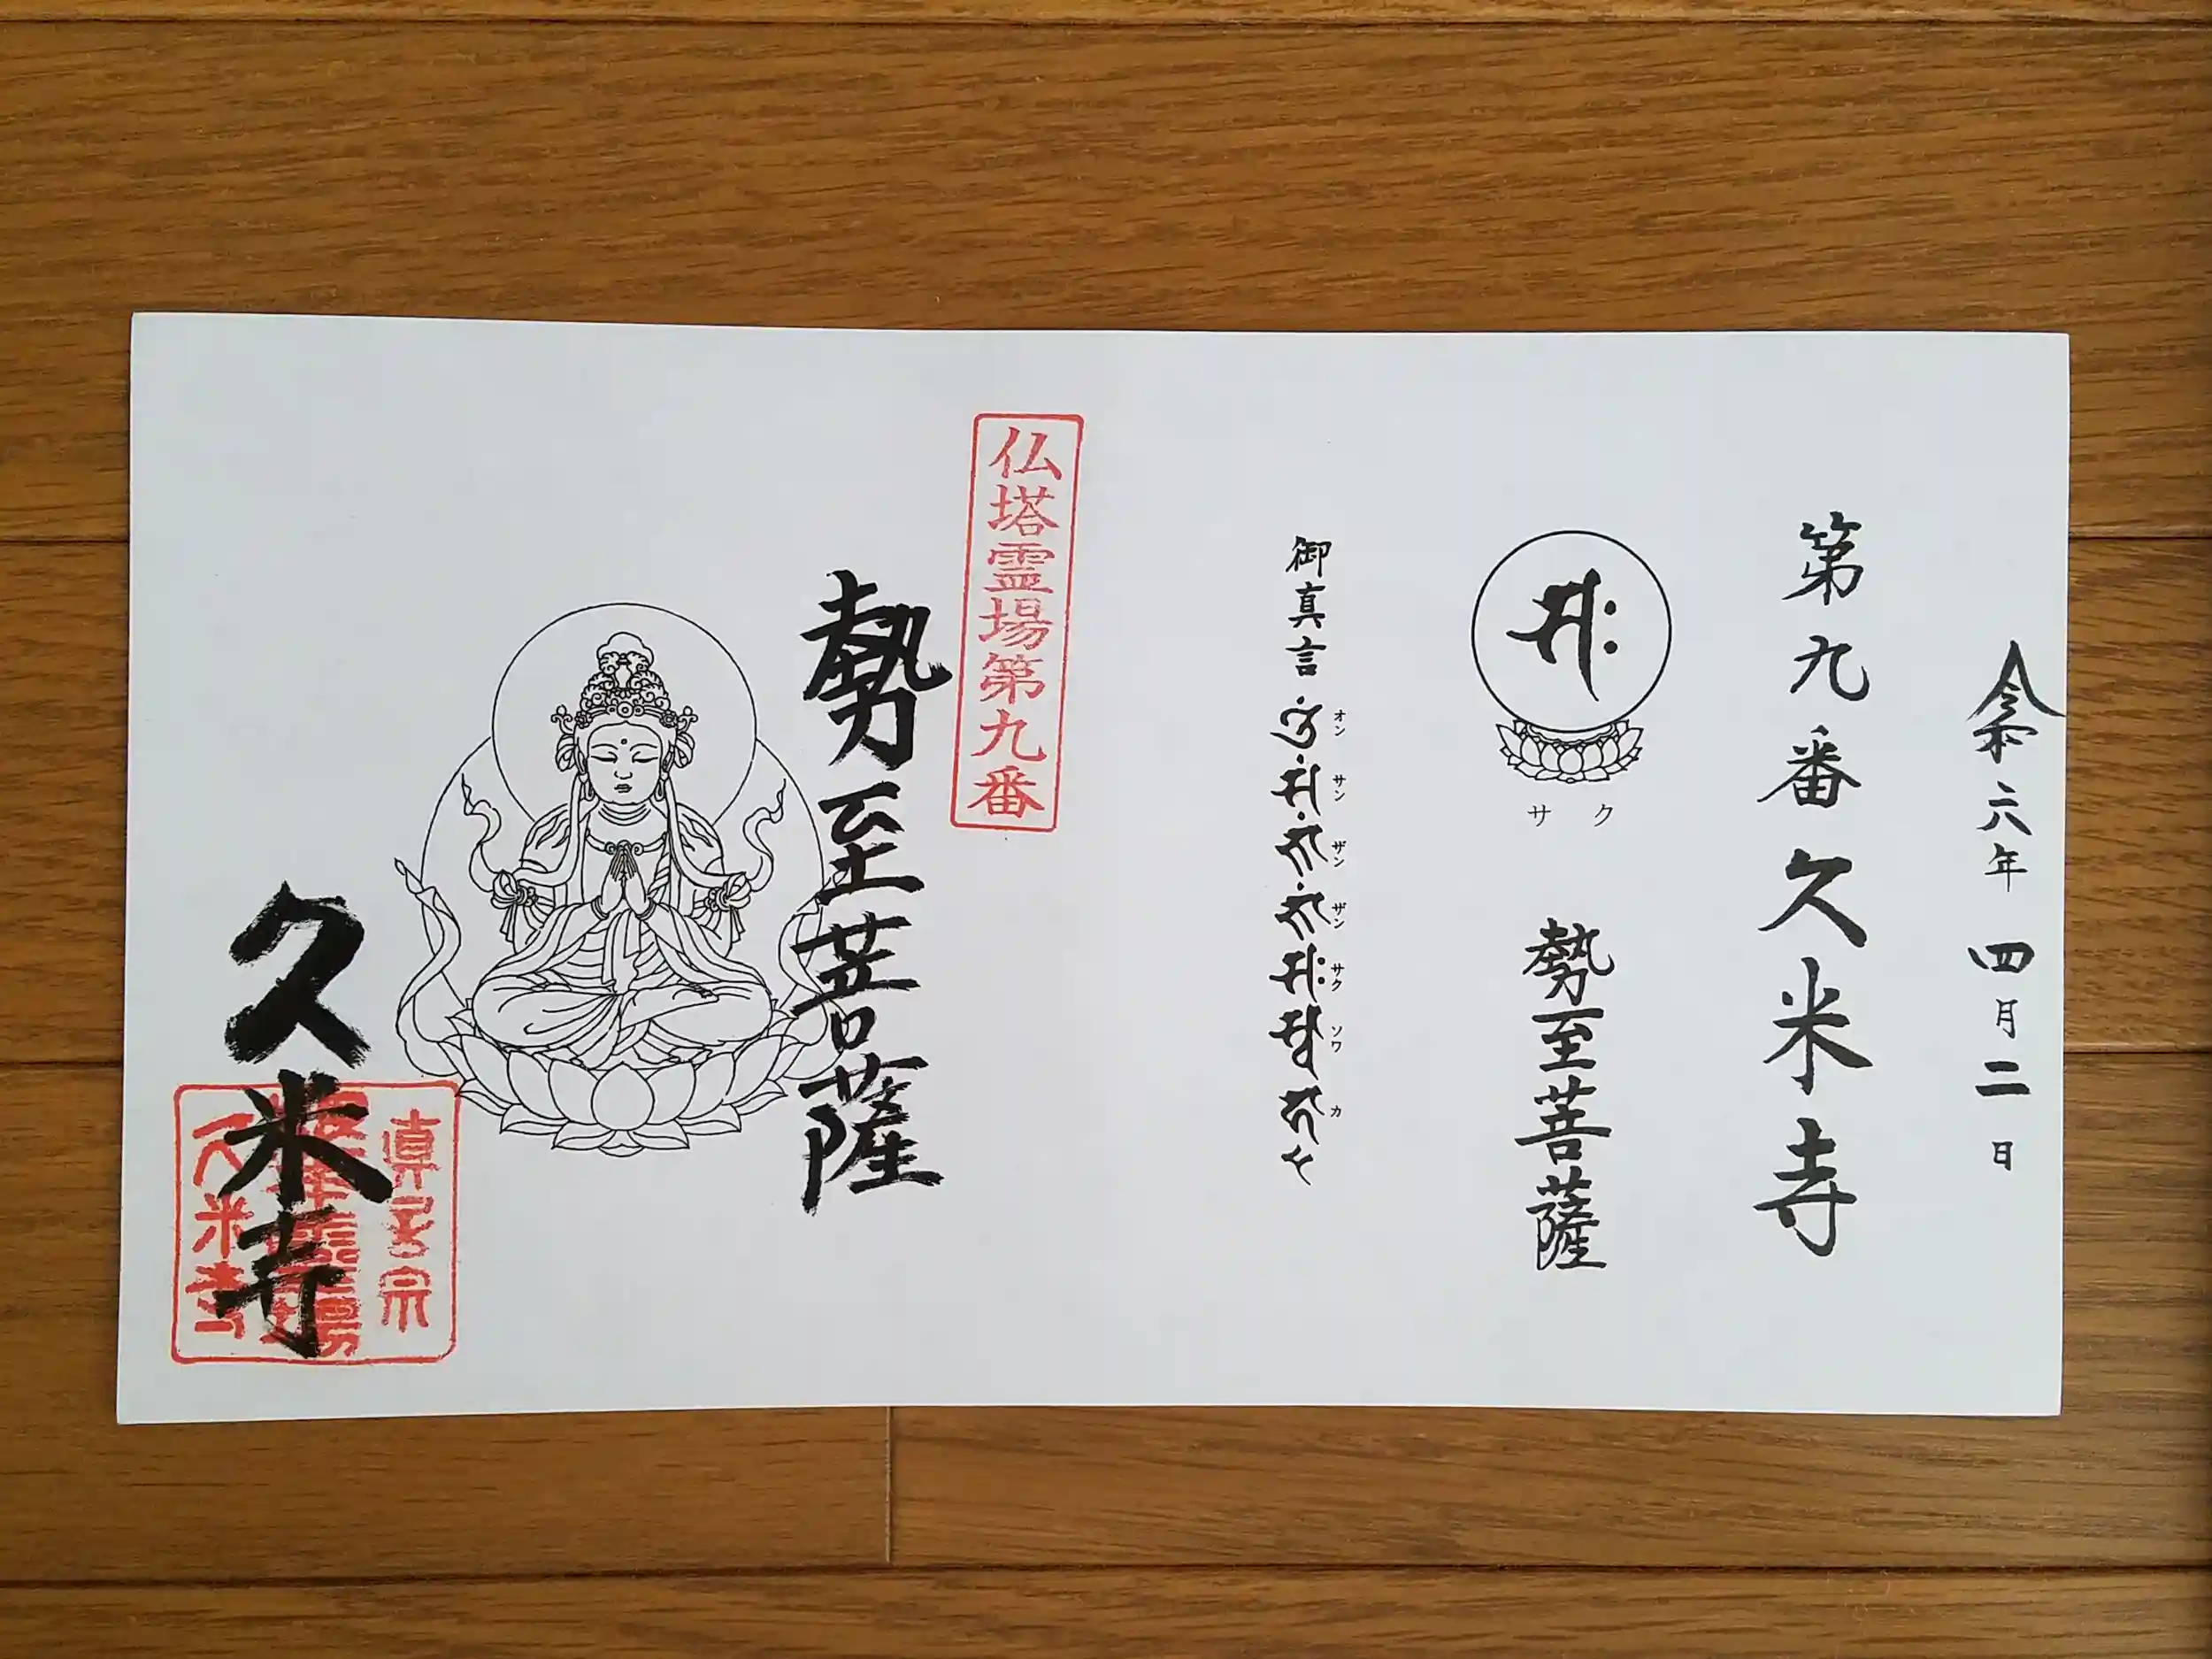 令和六年四月二日
第九番久米寺
サク
勢至菩薩
御真言
オン サン ザン ザン サク ソワ カ
仏塔霊場第九番
勢至菩薩
久米寺
真言宗
久米寺